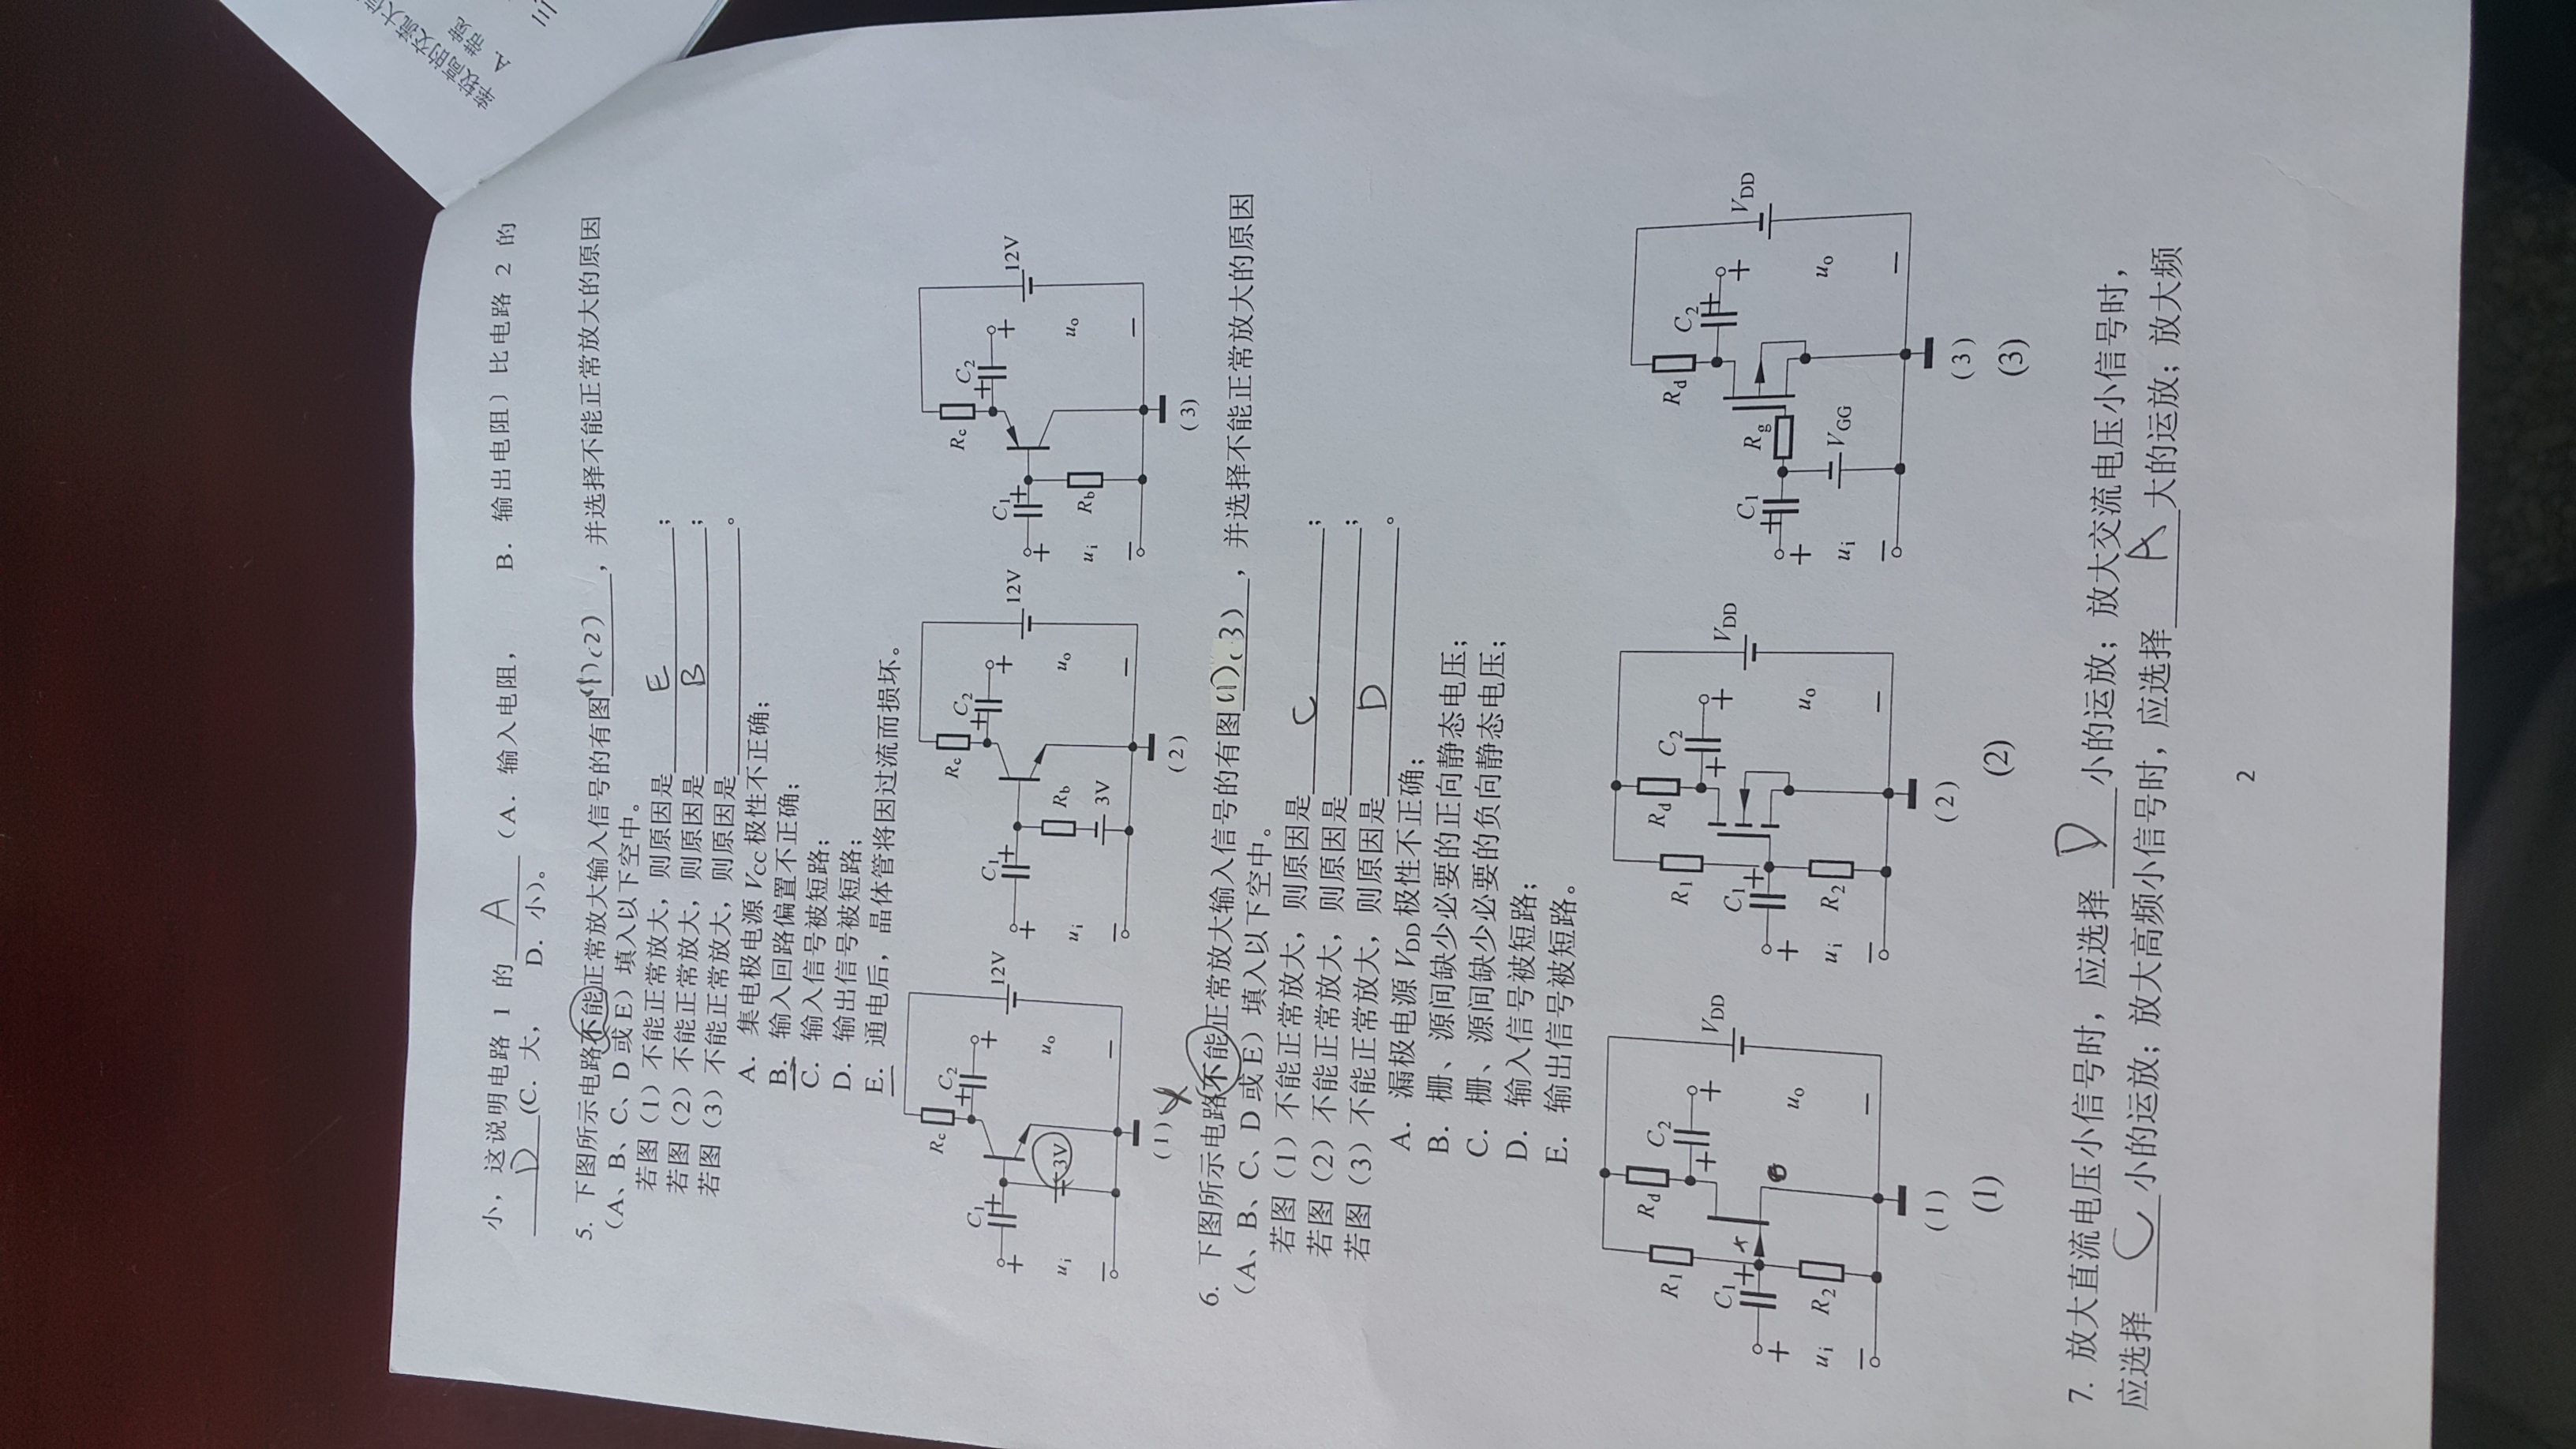 率较高的交流大信
A. 带宽
小，这说明电路 1 的 A （A. 输入电阻， B. 输出电阻）比电路 2 的
D (C. 大， D. 小)。
5. 下图所示电路不能正常放大输入信号的有图(1)(2)，并选择不能正常放大的原因
（A、B、C、D 或 E）填入以下空中。
若图（1）不能正常放大，则原因是 E ；
若图（2）不能正常放大，则原因是 B ；
若图（3）不能正常放大，则原因是 。
A. 集电极电源 VCC 极性不正确；
B. 输入回路偏置不正确；
C. 输入信号被短路；
D. 输出信号被短路；
E. 通电后，晶体管将因过流而损坏。
C1 + + ui − 3V Rc C2 + + 12V uo − (1)
C1 + + ui − Rb 3V Rc C2 + + 12V uo − (2)
C1 + + ui − Rb Rc C2 + + 12V uo − (3)
6. 下图所示电路不能正常放大输入信号的有图(1)(3)，并选择不能正常放大的原因
（A、B、C、D 或 E）填入以下空中。
若图（1）不能正常放大，则原因是 C ；
若图（2）不能正常放大，则原因是 ；
若图（3）不能正常放大，则原因是 D 。
A. 漏极电源 VDD 极性不正确；
B. 栅、源间缺少必要的正向静态电压；
C. 栅、源间缺少必要的负向静态电压；
D. 输入信号被短路；
E. 输出信号被短路。
C1 + + ui − R1 R2 Rd C2 + + VDD uo − (1)
C1 + + ui − R1 R2 Rd C2 + + VDD uo − (2)
C1 + + ui − Rg VGG Rd C2 + + VDD uo − (3)
(1) (2) (3)
7. 放大直流电压小信号时，应选择 D 小的运放；放大交流电压小信号时，
应选择 C 小的运放；放大高频小信号时，应选择 A 大的运放；放大频
2